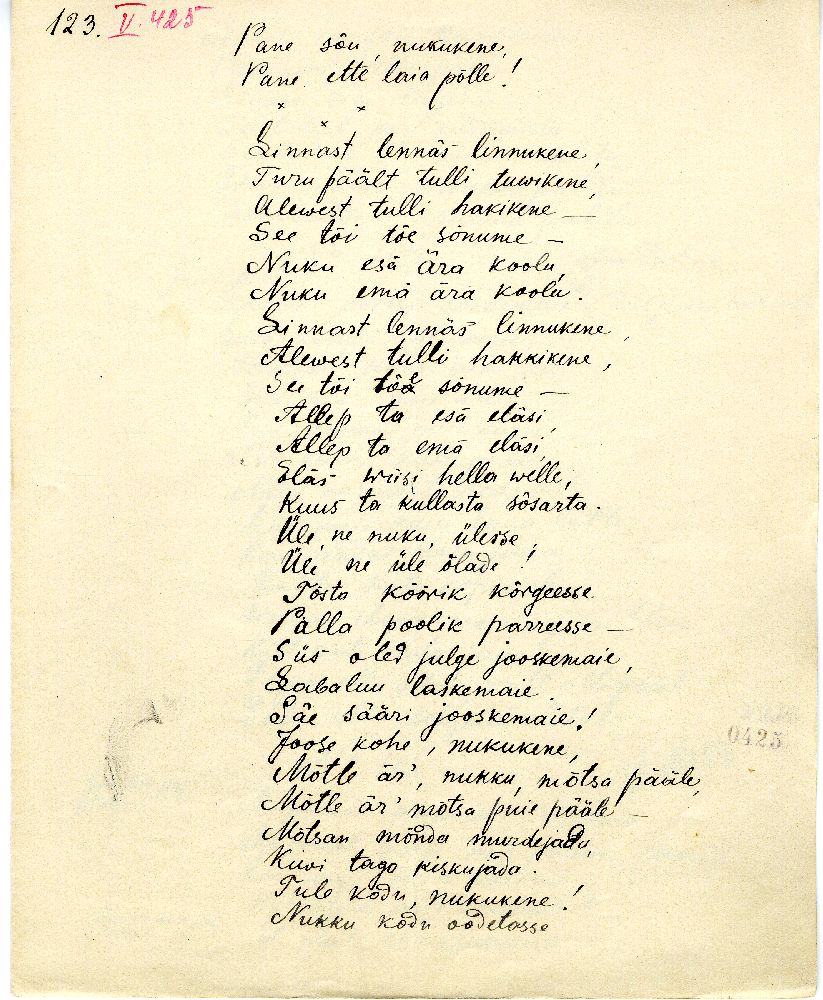 123. V. 425
Pane sõu, nukukene,
Pane ette laia põlle!
× × ×
Linnast lennäs linnukene,
Turu päält tulli tuwikene,
Alewest tulli hakikene —
See tõi tõe sõnume —
Nuku esä ära koolu,
Nuku emä ära koolu.
Linnast lennäs linnukene,
Alewest tulli hakkikene,
See tõi tõe sõnume —
Allep ta esä eläsi,
Allep ta emä eläsi,
Eläs wiisi hella welle,
Kuus ta kullasta sõsarta.
Üle, ne nuku, ülesse,
Üle ne üle õlade!
Tõsta köörik kõrgeesse
Palla poolik parreesse —
Siis oled julge jooskemaie,
Labaluu laskemaie
Säe sääri jooskemaie!
Joose kohe, nukukene,
Mõtle är', nukku, mõtsa pääle,
Mõtle är' mõtsa puie pääle —
Mõtsan mõnda murdejada,
Kiwi tago kiskujada.
Tule kodu, nukukene!
Nukku kodu oodetasse
0425